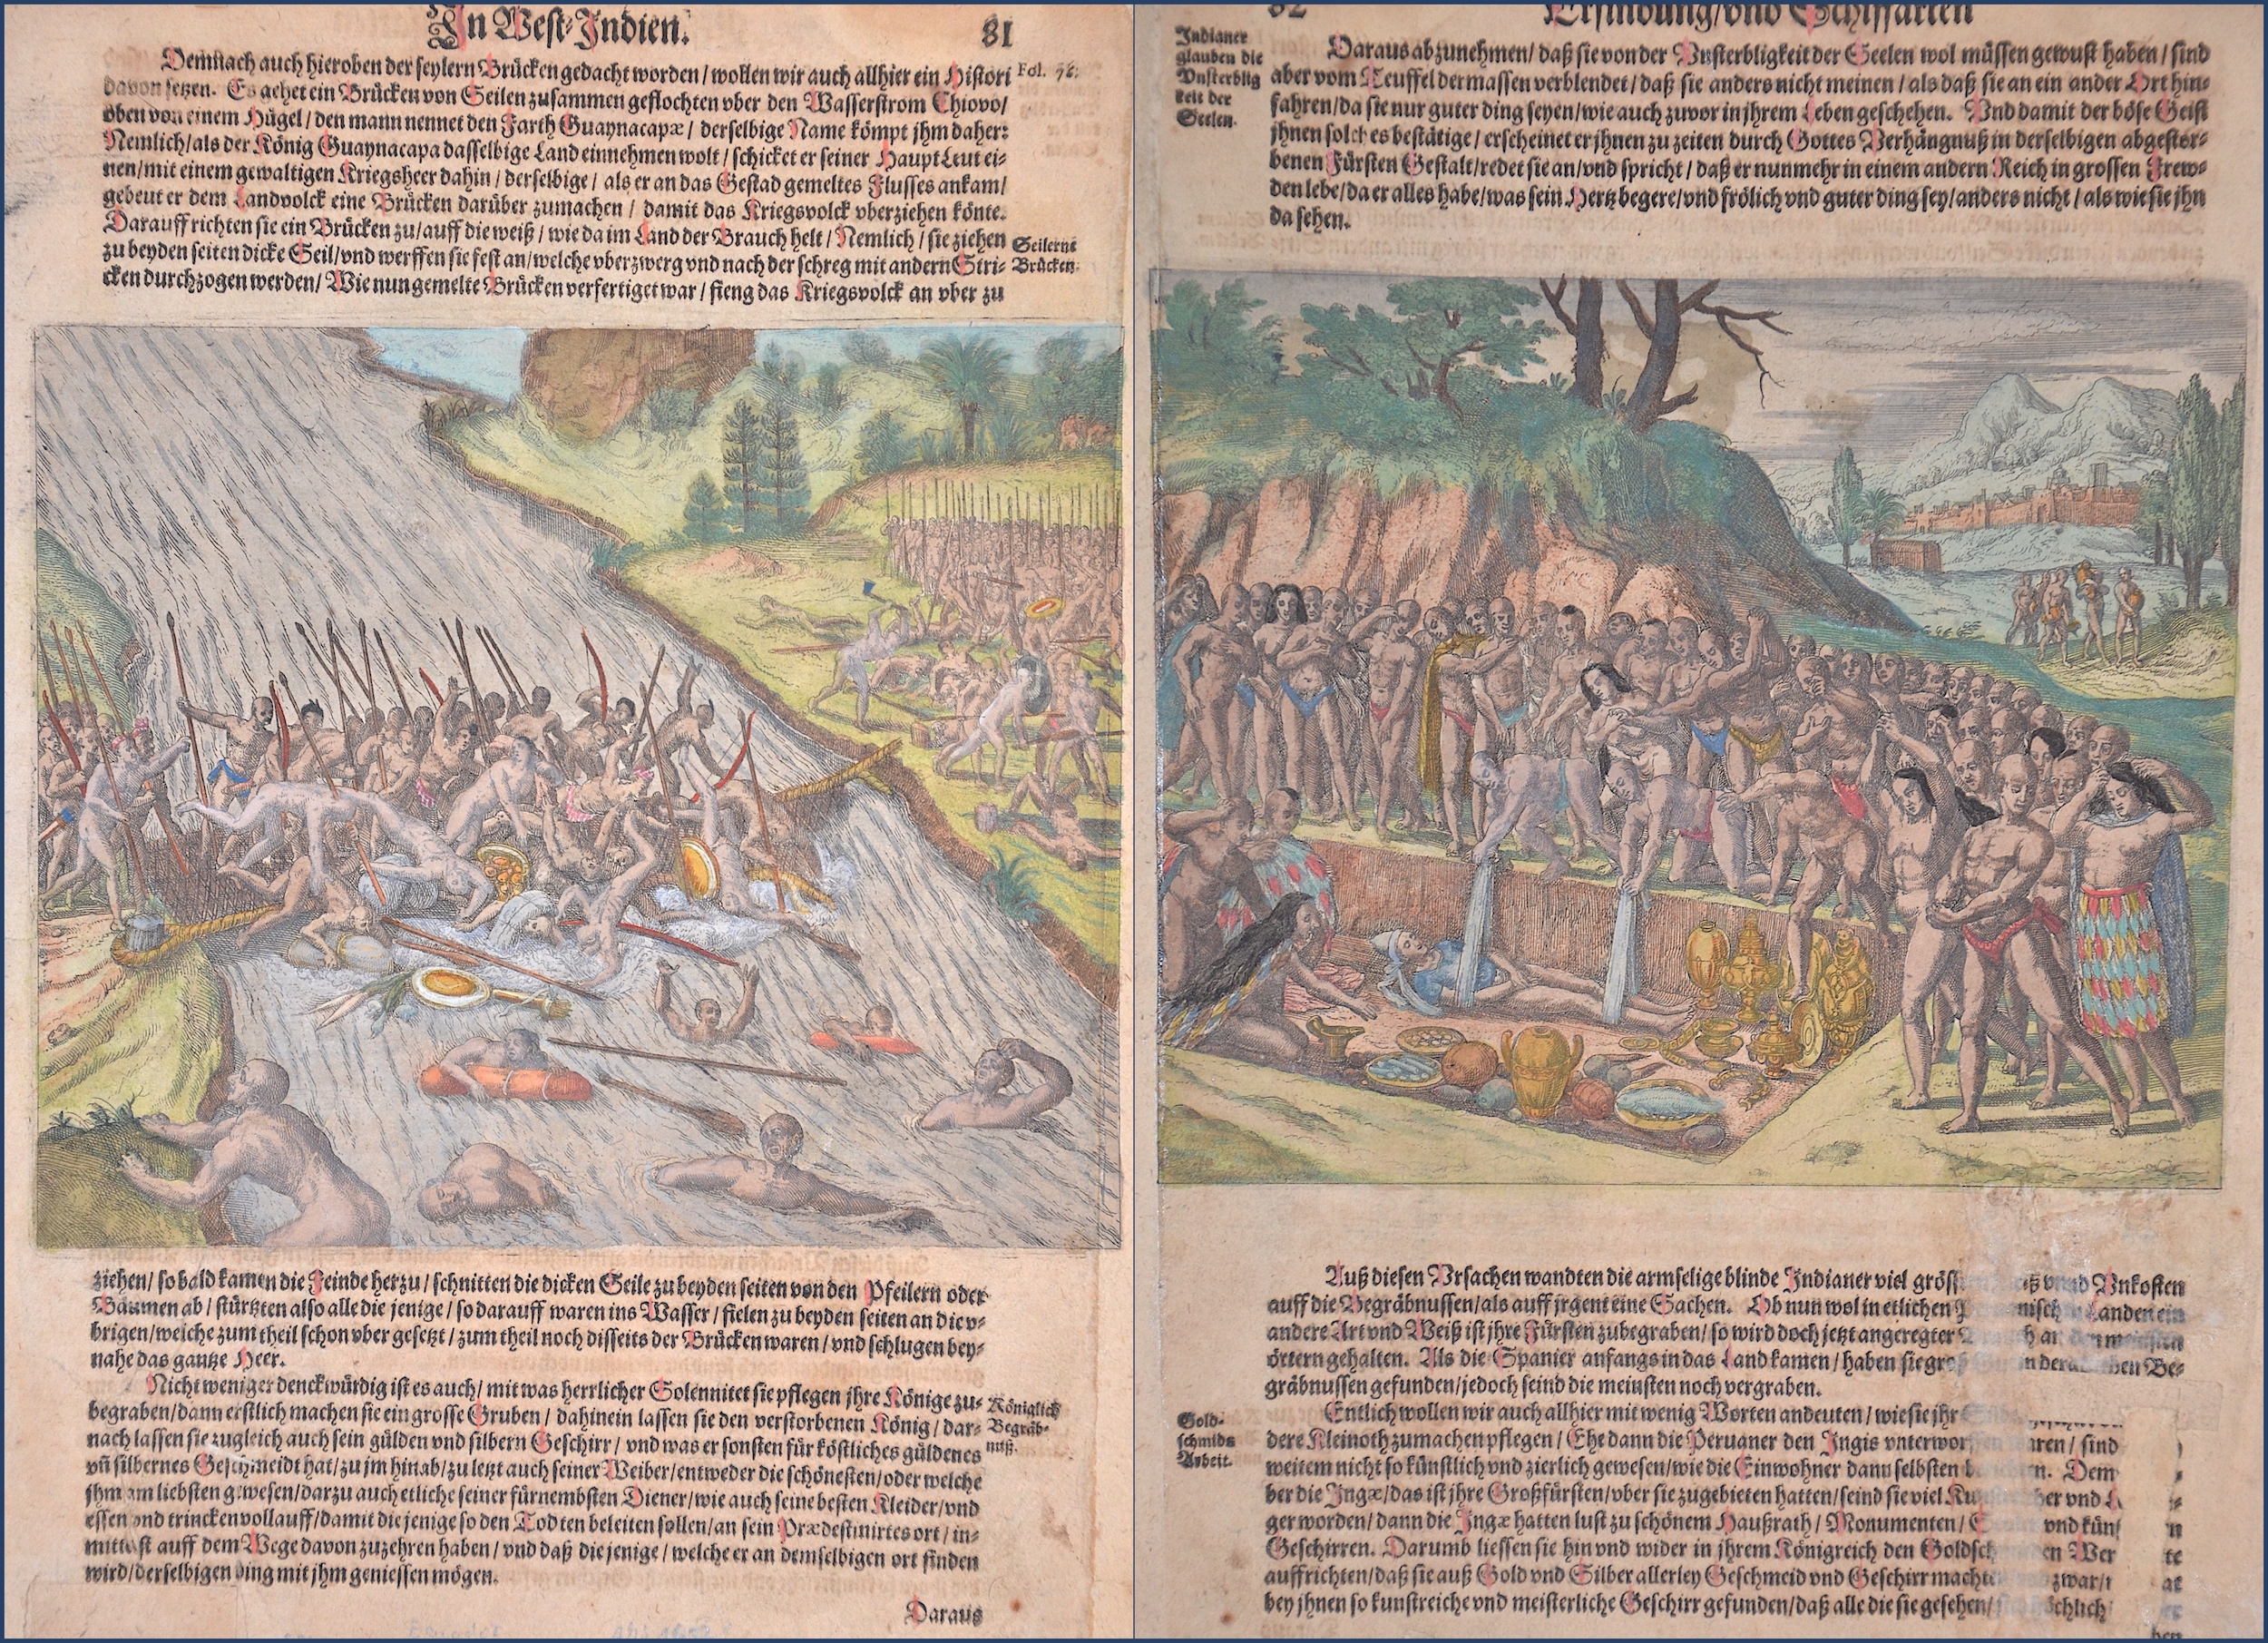 In West-Indien.
81
Demnach auch hieroben der seylern Brücken gedacht worden / wollen wir auch allhier ein Histori
Fol. 78.
davon setzen. Es gehet ein Brücken von Seilen zusammen geflochten vber den Wasserstrom Chiovo/
oben von einem Hügel / den mann nennet den Farth Guaynacapæ / derselbige Name kömpt jhm daher:
Nemlich / als der König Guaynacapa dasselbige Land einnehmen wolt / schicket er seiner HauptLeut ei-
nen / mit einem gewaltigen Kriegsheer dahin / derselbige / als er an das Gestad gemeltes Flusses ankam /
gebeut er dem Landvolck eine Brücken darüber zumachen / damit das Kriegsvolck vberziehen könte.
Darauff richten sie ein Brücken zu / auff die weiß / wie da im Land der Brauch helt / Nemlich / sie ziehen
Seilerne
Brücken.
zu beyden seiten dicke Seil / vnd werffen sie fest an / welche vberzwerg vnd nach der schreg mit andern Stri-
cken durchzogen werden / Wie nun gemelte Brücken verfertiget war / fieng das Kriegsvolck an vber zu
ziehen / so bald kamen die Feinde herzu / schnitten die dicken Seile zu beyden seiten von den Pfeilern oder
Bäumen ab / stürtzten also alle die jenige / so darauff waren ins Wasser / fielen zu beyden seiten an die v-
brigen / welche zum theil schon vber gesetzt / zum theil noch disseits der Brücken waren / vnd schlugen bey-
nahe das gantze Heer.
Nicht weniger denckwürdig ist es auch / mit was herrlicher Solennitet sie pflegen jhre Könige zu-
Königlich
Begräb-
nuß.
begraben / dann erstlich machen sie ein grosse Gruben / dahinein lassen sie den verstorbenen König / dar-
nach lassen sie zugleich auch sein gülden vnd silbern Geschirr / vnd was er sonsten für köstliches güldenes
vñ silbernes Geschmeidt hat / zu jm hinab / zu letzt auch seiner Weiber / entweder die schönesten / oder welche
jhm am liebsten gewesen / darzu auch etliche seiner fürnembsten Diener / wie auch seine besten Kleider / vnd
essen vnd trincken vollauff / damit die jenige so den Todten beleiten sollen / an sein Prædestinirtes ort / in-
mittelst auff dem Wege davon zuzehren haben / vnd daß die jenige / welche er an demselbigen ort finden
wird / derselbigen ding mit jhm geniessen mögen.
Daraus
82
Erfindung / vnd Schiffarten
Indianer
glauben die
Vnsterblig
keit der
Seelen.
Daraus abzunehmen / daß sie von der Vnsterbligkeit der Seelen wol müssen gewust haben / sind
aber vom Teuffel dermassen verblendet / daß sie anders nicht meinen / als daß sie an ein ander Ort hin-
fahren / da sie nur guter ding seyen / wie auch zuvor in jhrem Leben geschehen. Vnd damit der böse Geist
jhnen solches bestätige / erscheinet er jhnen zu zeiten durch Gottes Verhängnuß in derselbigen abgestor-
benen Fürsten Gestalt / redet sie an / vnd spricht / daß er nunmehr in einem andern Reich in grossen Frew-
den lebe / da er alles habe / was sein Hertz begere / vnd frölich vnd guter ding sey / anders nicht / als wie sie jhn
da sehen.
Auß diesen Vrsachen wandten die armselige blinde Indianer viel vnd Vnkosten
auff die Begräbnussen / als auff jrgent eine Sachen. Ob nun wol in etlichen Landen ein
andere Art vnd Weiß ist jhre Fürsten zubegraben / so wird doch jetzt angeregter
örtern gehalten. Als die Spanier anfangs in das Land kamen / haben sie Be-
gräbnussen gefunden / jedoch seind die meinsten noch vergraben.
Gold-
schmids
Arbeit.
Entlich wollen wir auch allhier mit wenig Worten andeuten / wie sie jhr
dere Kleinoth zumachen pflegen / Ehe dann die Peruaner den Ingis sind
weitem nicht so künstlich vnd zierlich gewesen / wie die Einwohner dann selbsten Dem
ber die Ingæ / das ist jhre Großfürsten / vber sie zugebieten hatten / seind sie viel vnd
ger worden / dann die Ingæ hatten lust zu schönem Haußrath / Monumenten / vnd
Geschirren. Darumb liessen sie hin vnd wider in jhrem Königreich den
auffrichten / daß sie auß Gold vnd Silber allerley Geschmeid vnd Geschirr
bey jhnen so kunstreiche vnd meisterliche Geschirr gefunden / daß alle die sie gesehen /